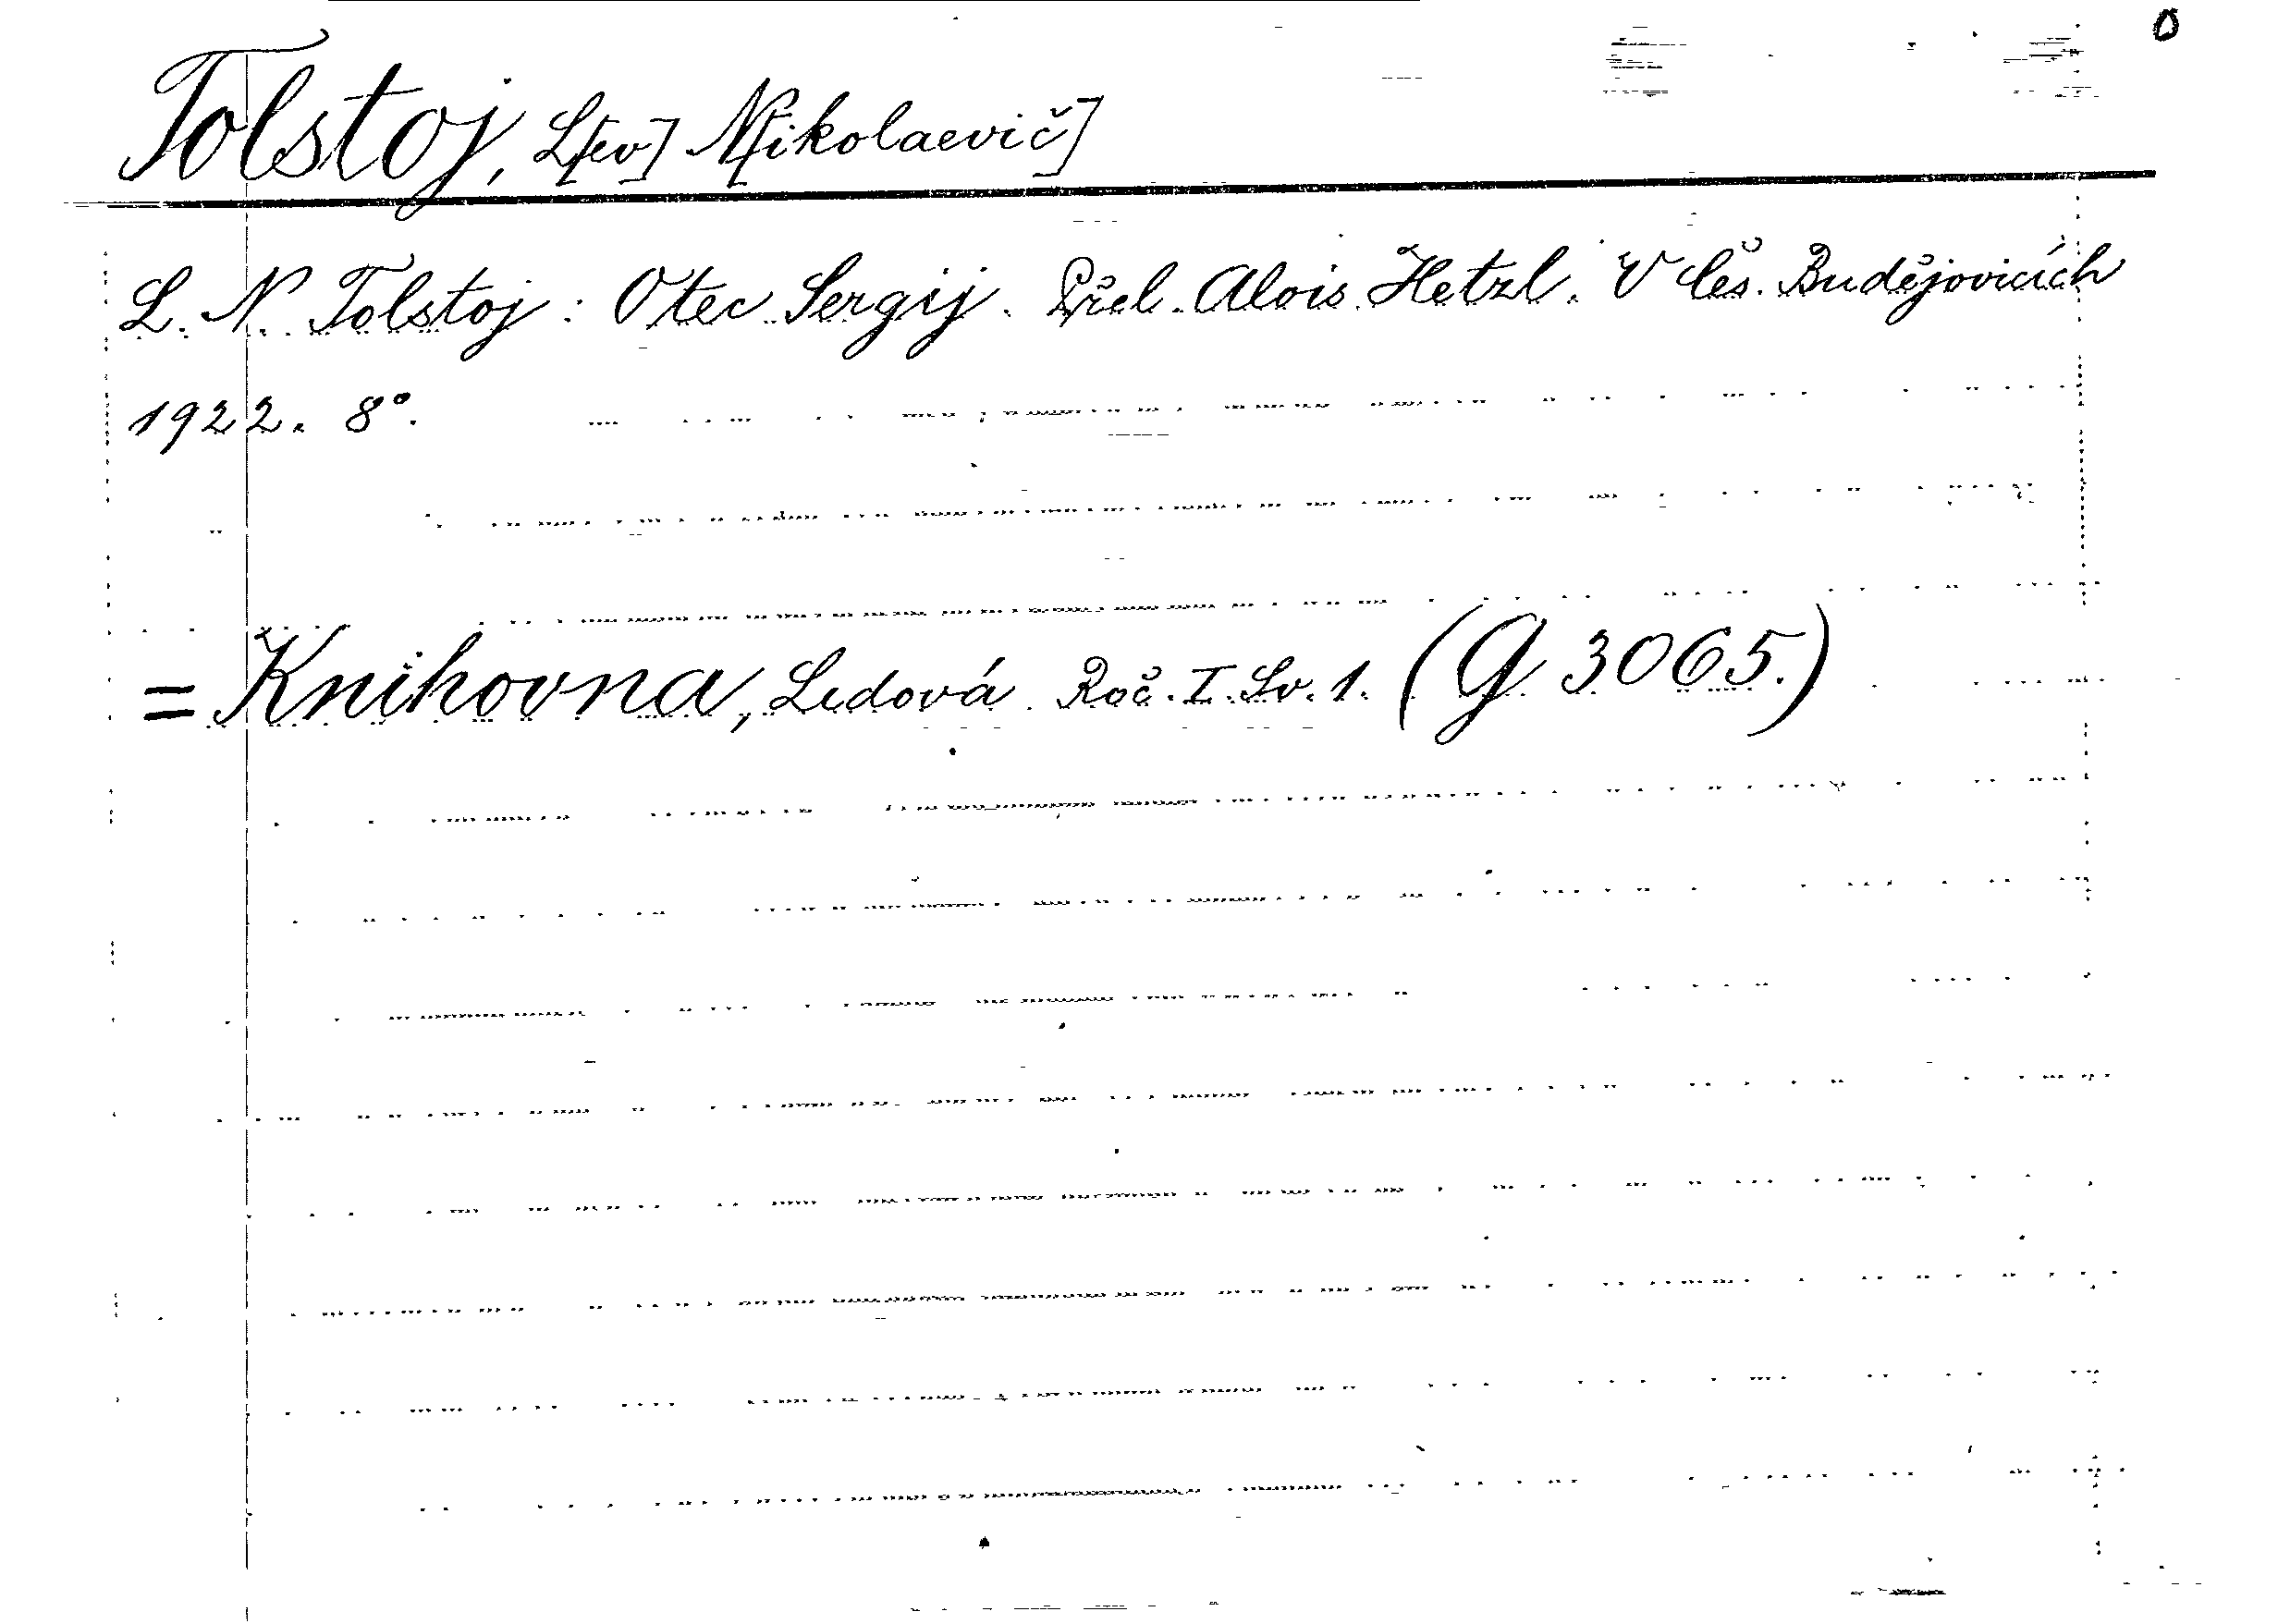 Tolstoj, L[ev] N[ikolaevič]
L. N. Tolstoj: Otec Sergij. Přel. Alois Hetzl. V Čes. Budějovicích
1922. 8°.
= Knihovna, Ledová. Roč. I. Sv. 1. (G 3065.)